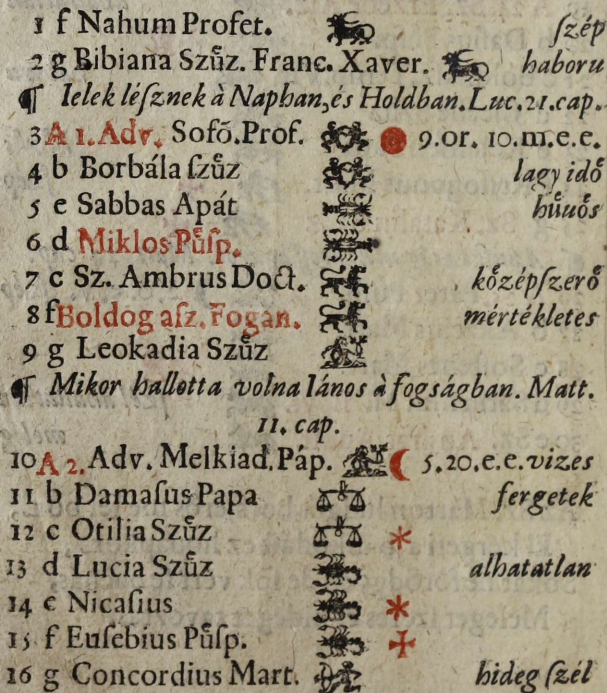 1 f Nahum Profet. ſzép
2 g Bibiana Szűz. Franc. Xaver. haboru
¶ Ielek léſznek à Napban, és Holdban. Luc. 21. cap.
3 A 1. Adv. Sofō. Prof. 9. or. 10. m. e. e.
4 b Borbála ſzűz lagy idő
5 e Sabbas Apát hűuős
6 d Miklos Půſp.
7 c Sz. Ambrus Doct. kőzépſzerő
8 f Boldog aſz. Fogan. mértékletes
9 g Leokadia Szűz
¶ Mikor hallotta volna Iános à fogságban. Matt.
11. cap.
10 A 2. Adv. Melkiad. Páp. 5. 20. e. e. vizes
11 b Damaſus Papa fergetek
12 c Otilia Szűz
13 d Lucia Szűz alhatatlan
14 e Nicaſius
15 f Euſebius Půſp.
16 g Concordius Mart. hideg ſzél